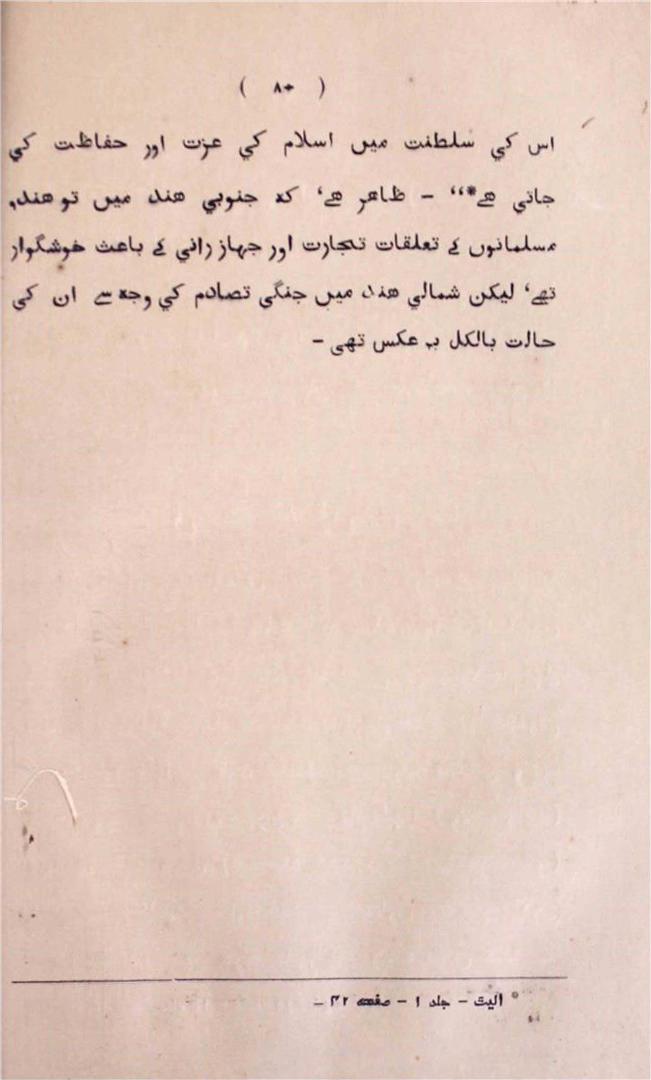 ( ۸۰ )
اس کي سلطنت ميں اسلام کي عزت اور حفاظت کي
جاتي هے*‘‘ - ظاهر هے‘ که جنوبي هند ميں تو هندو
مسلمانوں کے تعلقات تجارت اور جہاز راني کے باعث خوشگوار
تهے‘ ليکن شمالي هند ميں جنگي تصادم کي وجه سے ان کي
حالت بالکل بر عکس تهي -
* اليت - جلد ۱ - صفحه ۳۲ -